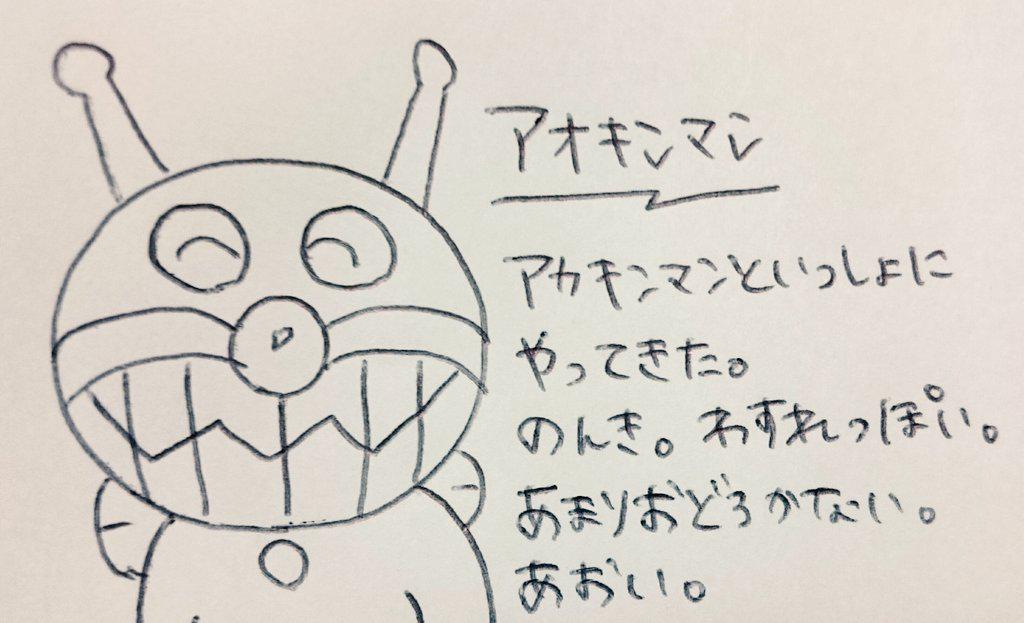 アオキンマン
アカキンマンといっしょに
やってきた。
のんき。わすれっぽい。
あまりおどろかない。
あおい。